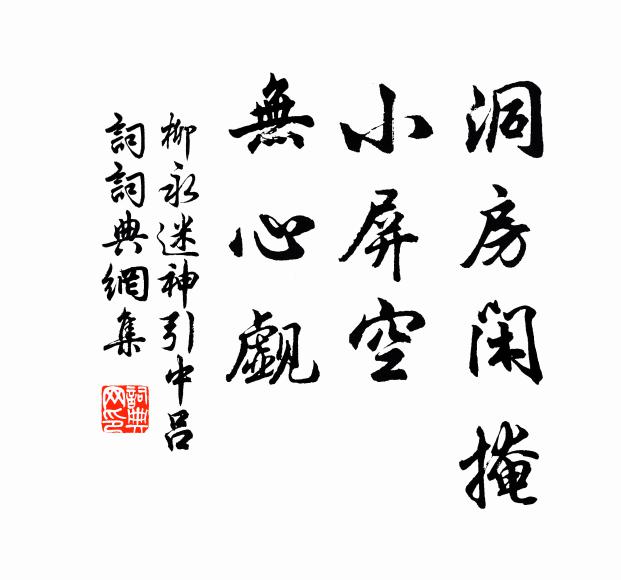 洞房閑掩
小屏空
無心覷
柳永迷神引中呂
詞詞典網集
詞典網印